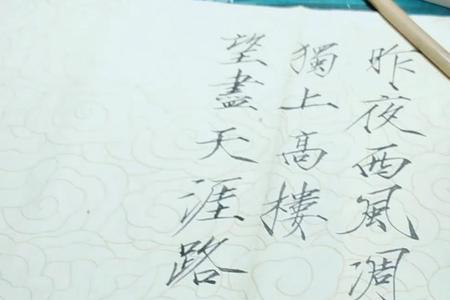 昨夜西風凋
獨上高樓
望盡天涯路